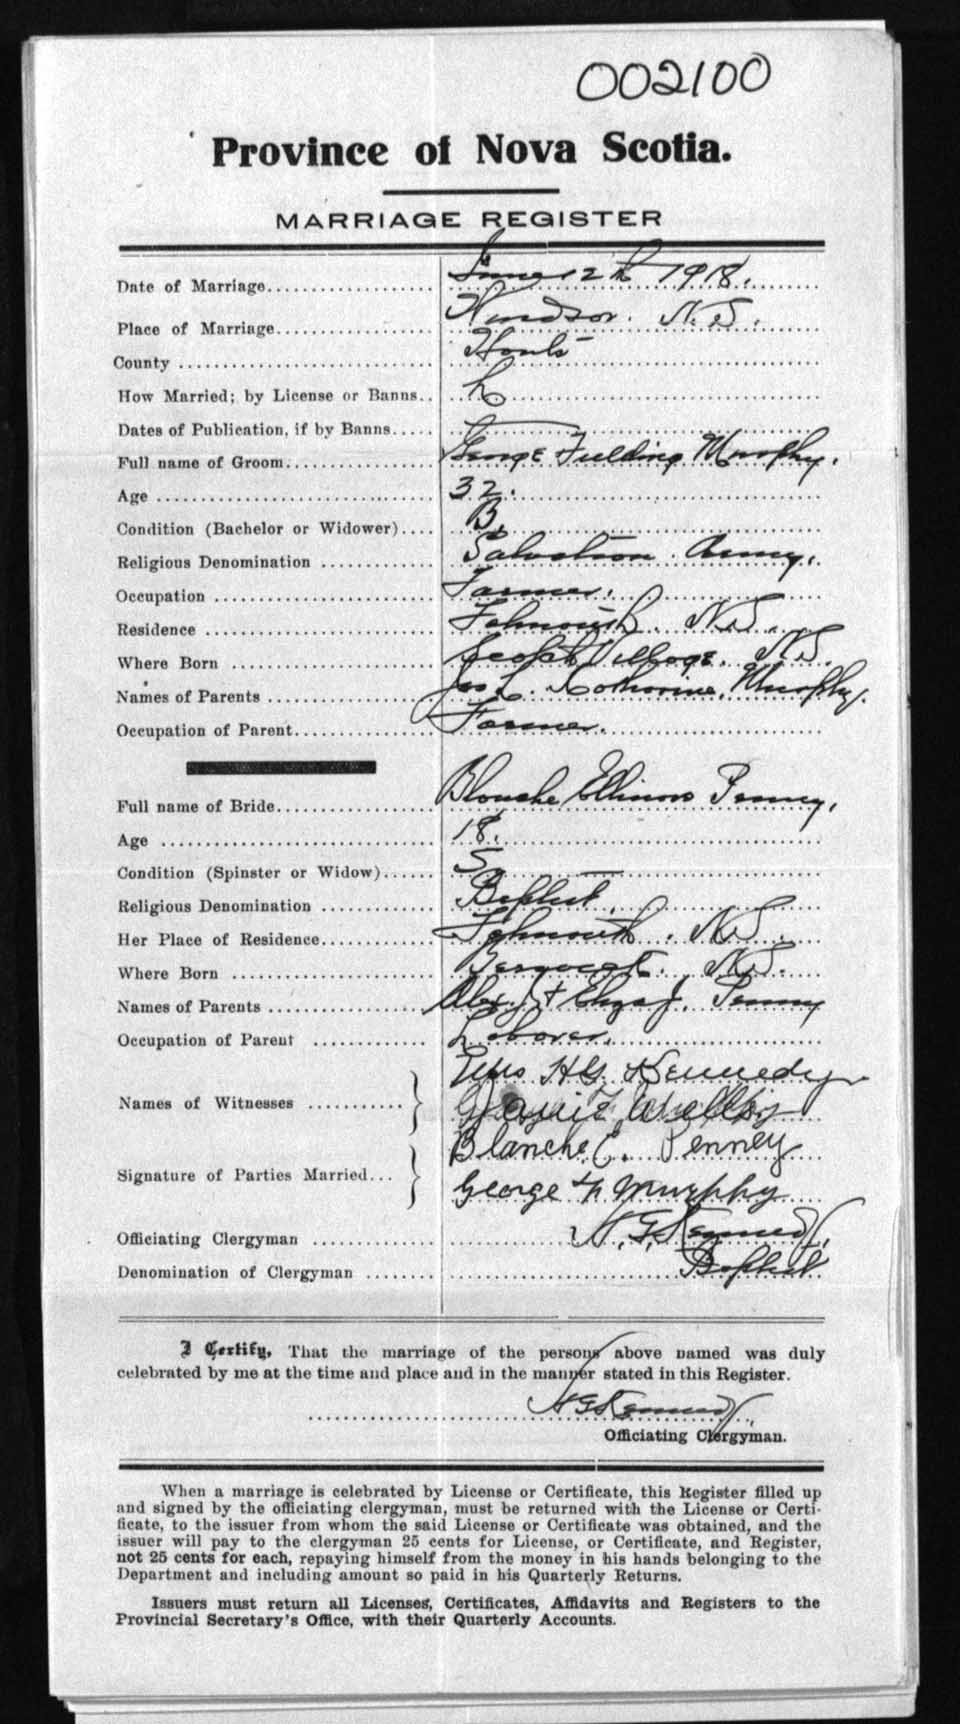 002100
Province of Nova Scotia.
MARRIAGE REGISTER
Date of Marriage June 12th 1918.
Place of Marriage Windsor. N.S.
County Hants
How Married; by License or Banns L
Dates of Publication, if by Banns —
Full name of Groom George Fielding Murphy.
Age 32.
Condition (Bachelor or Widower) B.
Religious Denomination Salvation Army.
Occupation Farmer.
Residence Falmouth. N.S.
Where Born Scotch Village. N.S.
Names of Parents Jas L. Katherine Murphy.
Occupation of Parent Farmer.
Full name of Bride Blanche Ellinor Penney.
Age 18.
Condition (Spinster or Widow) S
Religious Denomination Baptist.
Her Place of Residence Falmouth. N.S.
Where Born N.S.
Names of Parents Alex. + Eliza J. Penney
Occupation of Parent Laborer.
Names of Witnesses Mrs H.G. Kennedy
Signature of Parties Married Blanche E. Penney
George F. Murphy
Officiating Clergyman H.G. Kennedy.
Denomination of Clergyman Baptist
I Certify, That the marriage of the persons above named was duly
celebrated by me at the time and place and in the manner stated in this Register.
H G Kennedy.
Officiating Clergyman.
When a marriage is celebrated by License or Certificate, this Register filled up
and signed by the officiating clergyman, must be returned with the License or Certi-
ficate, to the issuer from whom the said License or Certificate was obtained, and the
issuer will pay to the clergyman 25 cents for License, or Certificate, and Register,
not 25 cents for each, repaying himself from the money in his hands belonging to the
Department and including amount so paid in his Quarterly Returns.
Issuers must return all Licenses, Certificates, Affidavits and Registers to the
Provincial Secretary's Office, with their Quarterly Accounts.